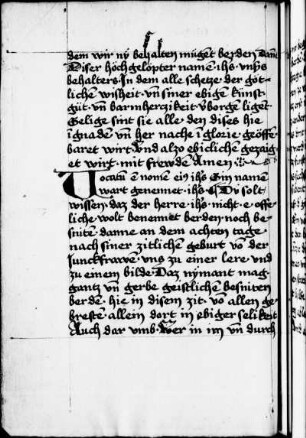 dem wir nẏ behalten múget berden Dann
Diser hòchgelopter namē ihs vnsˢ
behalters. In dem alle schetze der got-
lichen wisheit vn̄ siner ebige kunst
gút vn̄ barmherczikeit v̄borgē liget
Selige sint sie alle den dises hie
i gnadē vn̄ her nache i glorie geöffē
baret wirt vnd also ebicliche gezaig
et wirt mit frewde Amen
Vocatū ē nomē eiꝰ ihs Ein namē
wart genennet ihs Du solt
wissen daz der herre ihs nicht e offē
liche wolt benemmet berden noch be-
snite danne an dem achten tage
nach siner zitlichen geburt vō der
Junckfrawē vns zu einer lere vnd
zu einem bilde Daz nẏmant mag
gantz vn̄ gerbe geistlichen besniten
berdē hie in disem zit vō allen ge
breste allein dort in ebiger selikeit
Auch dar vmb wer in im vn̄ durch